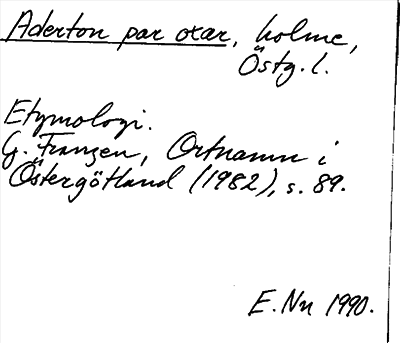 Aderton par oxar, holme,
Östg. l.
Etymologi.
G. Franzén, Ortnamn i
Östergötland (1982), s. 89.
E. Nn 1990.